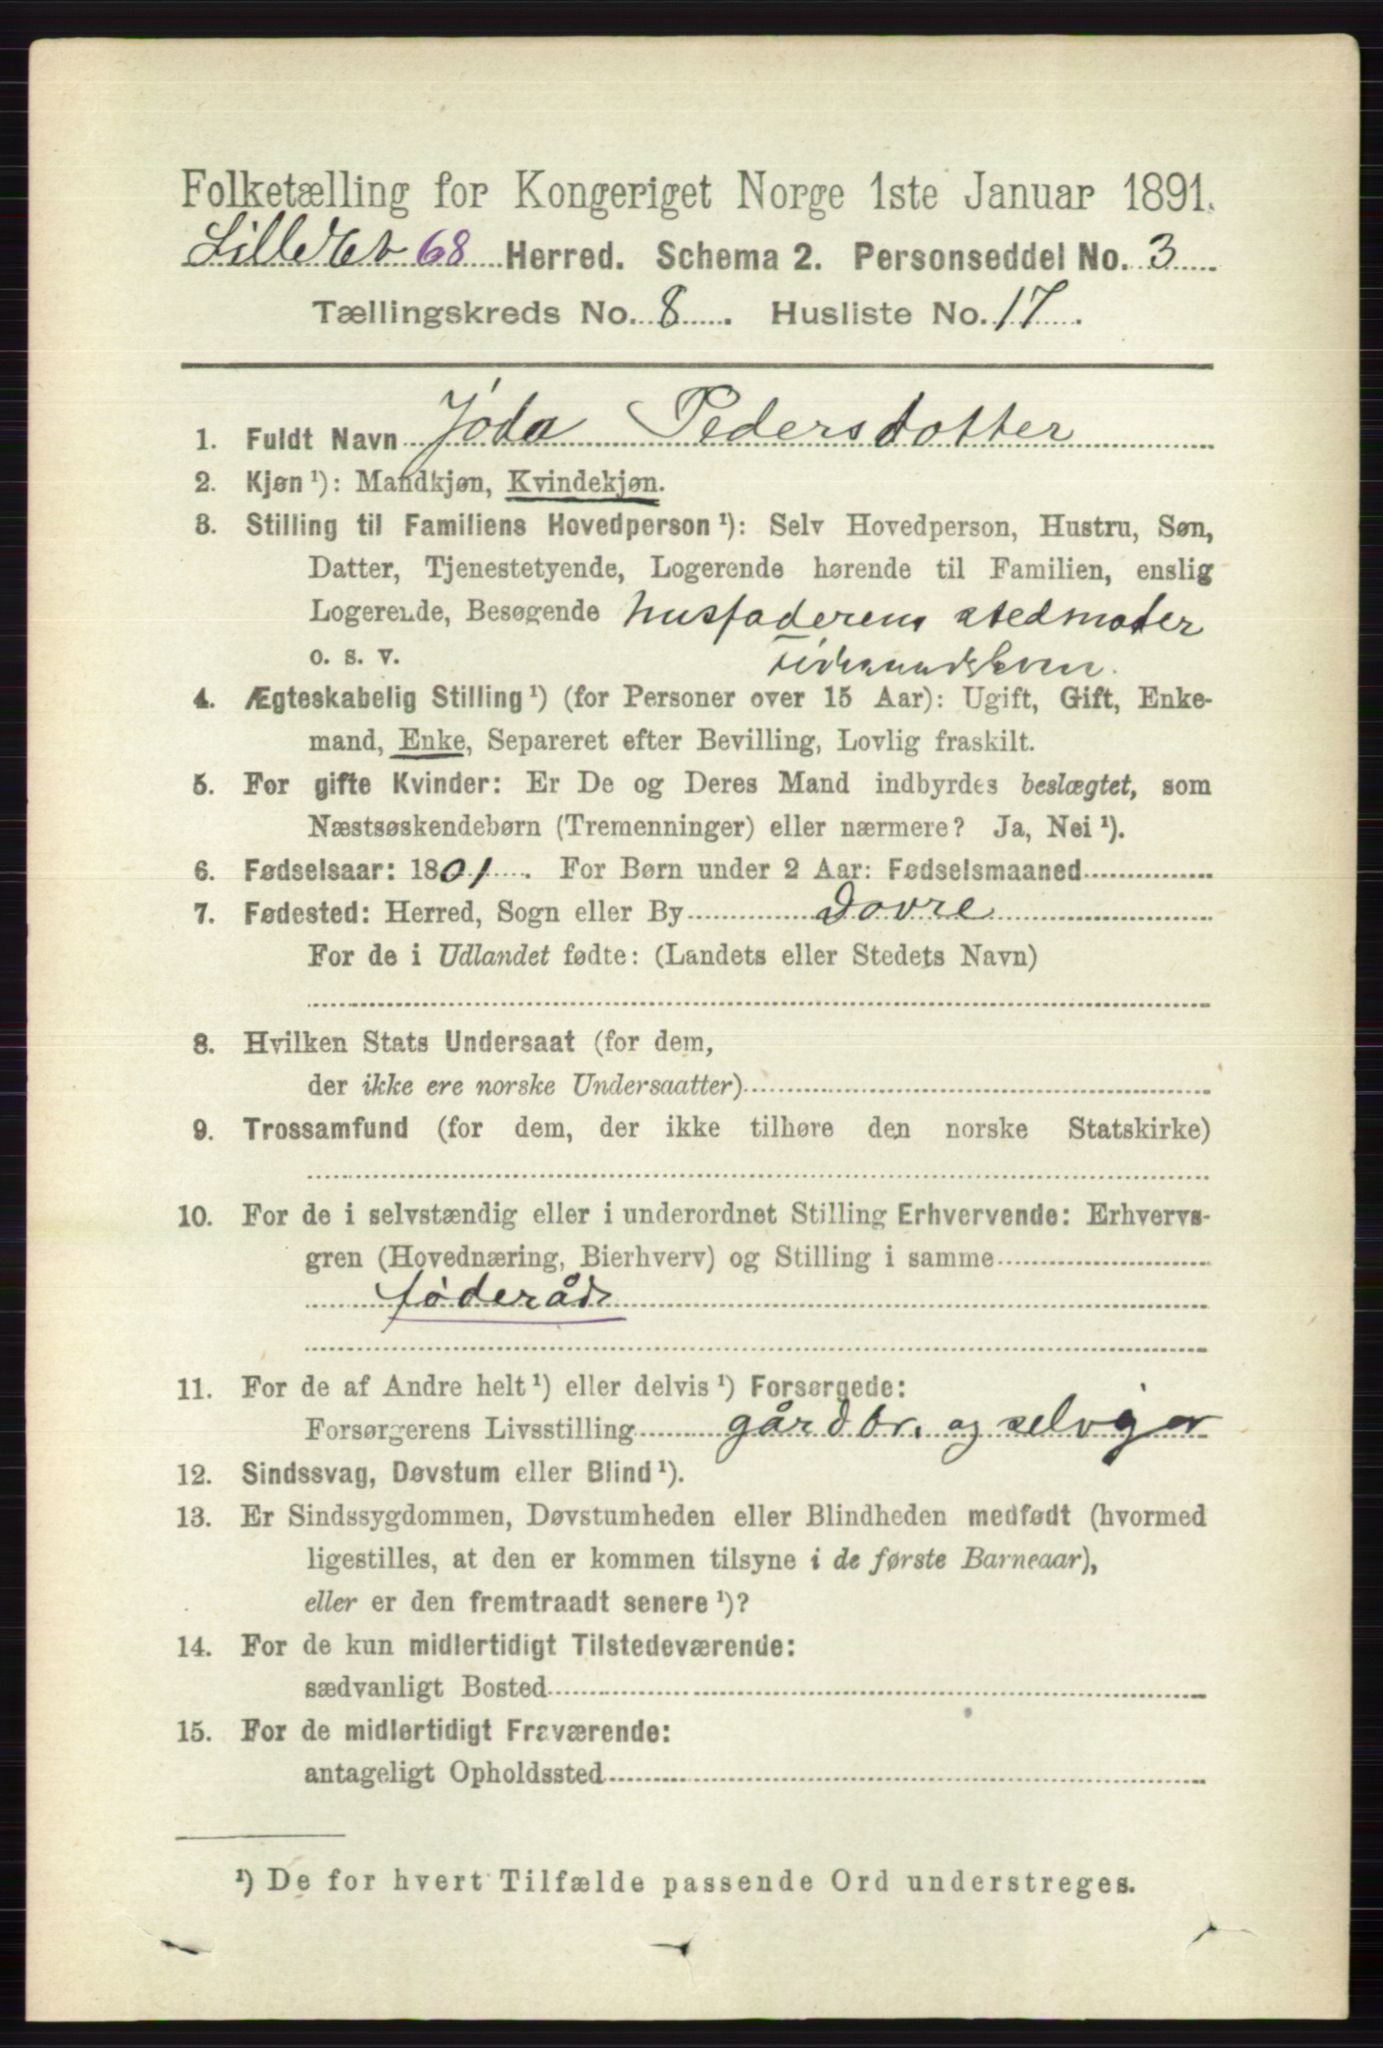 Folketælling for Kongeriget Norge 1ste Januar 1891.
68 Herred. Schema 2. Personseddel No. 3
Tællingskreds No. 8. Husliste No. 17.
1. Fuldt Navn Jøda Pedersdotter
2. Kjøn ¹): Mandkjøn, Kvindekjøn.
3. Stilling til Familiens Hovedperson ¹): Selv Hovedperson, Hustru, Søn,
Datter, Tjenestetyende, Logerende hørende til Familien, enslig
Logerende, Besøgende husfaderens stedmoder
o. s. v.
4. Ægteskabelig Stilling ¹) (for Personer over 15 Aar): Ugift, Gift, Enke-
mand, Enke, Separeret efter Bevilling, Lovlig fraskilt.
5. For gifte Kvinder: Er De og Deres Mand indbyrdes beslægtet, som
Næstsøskendebørn (Tremenninger) eller nærmere? Ja, Nei ¹).
6. Fødselsaar: 1801. For Børn under 2 Aar: Fødselsmaaned
7. Fødested: Herred, Sogn eller By Dovre
For de i Udlandet fødte: (Landets eller Stedets Navn)
8. Hvilken Stats Undersaat (for dem,
der ikke ere norske Undersaatter)
9. Trossamfund (for dem, der ikke tilhøre den norske Statskirke)
10. For de i selvstændig eller i underordnet Stilling Erhvervende: Erhvervs-
gren (Hovednæring, Bierhverv) og Stilling i samme
føderåd
11. For de af Andre helt ¹) eller delvis ¹) Forsørgede:
Forsørgerens Livsstilling gårdbr. og selvejer
12. Sindssvag, Døvstum eller Blind ¹).
13. Er Sindssygdommen, Døvstumheden eller Blindheden medfødt (hvormed
ligestilles, at den er kommen tilsyne i de første Barneaar),
eller er den fremtraadt senere ¹)?
14. For de kun midlertidigt Tilstedeværende:
sædvanligt Bosted
15. For de midlertidigt Fraværende:
antageligt Opholdssted
¹) De for hvert Tilfælde passende Ord understreges.